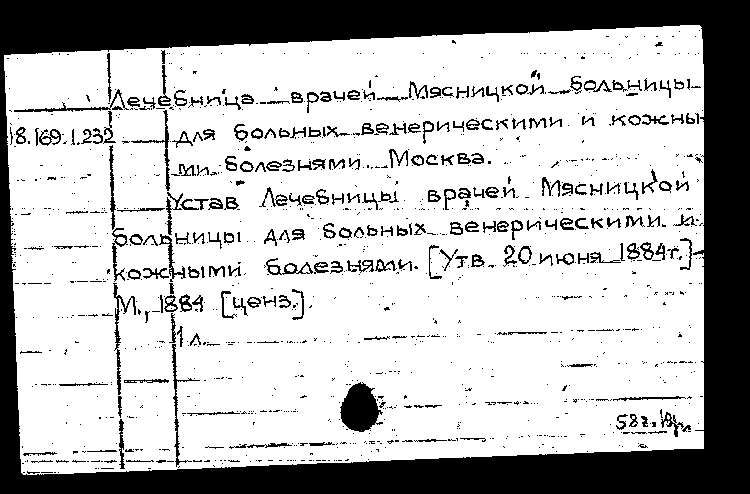 Лечебница врачей Мясницкой больницы
18.169.1.232 для больных венерическими и кожны
ми болезнями. Москва.
Устав Лечебницы врачей Мясницкой
больницы для больных венерическими и
кожными болезнями. [Утв. 20 июня 1884г.]-
М., 1884 [ценз.].
1 л.
58г.